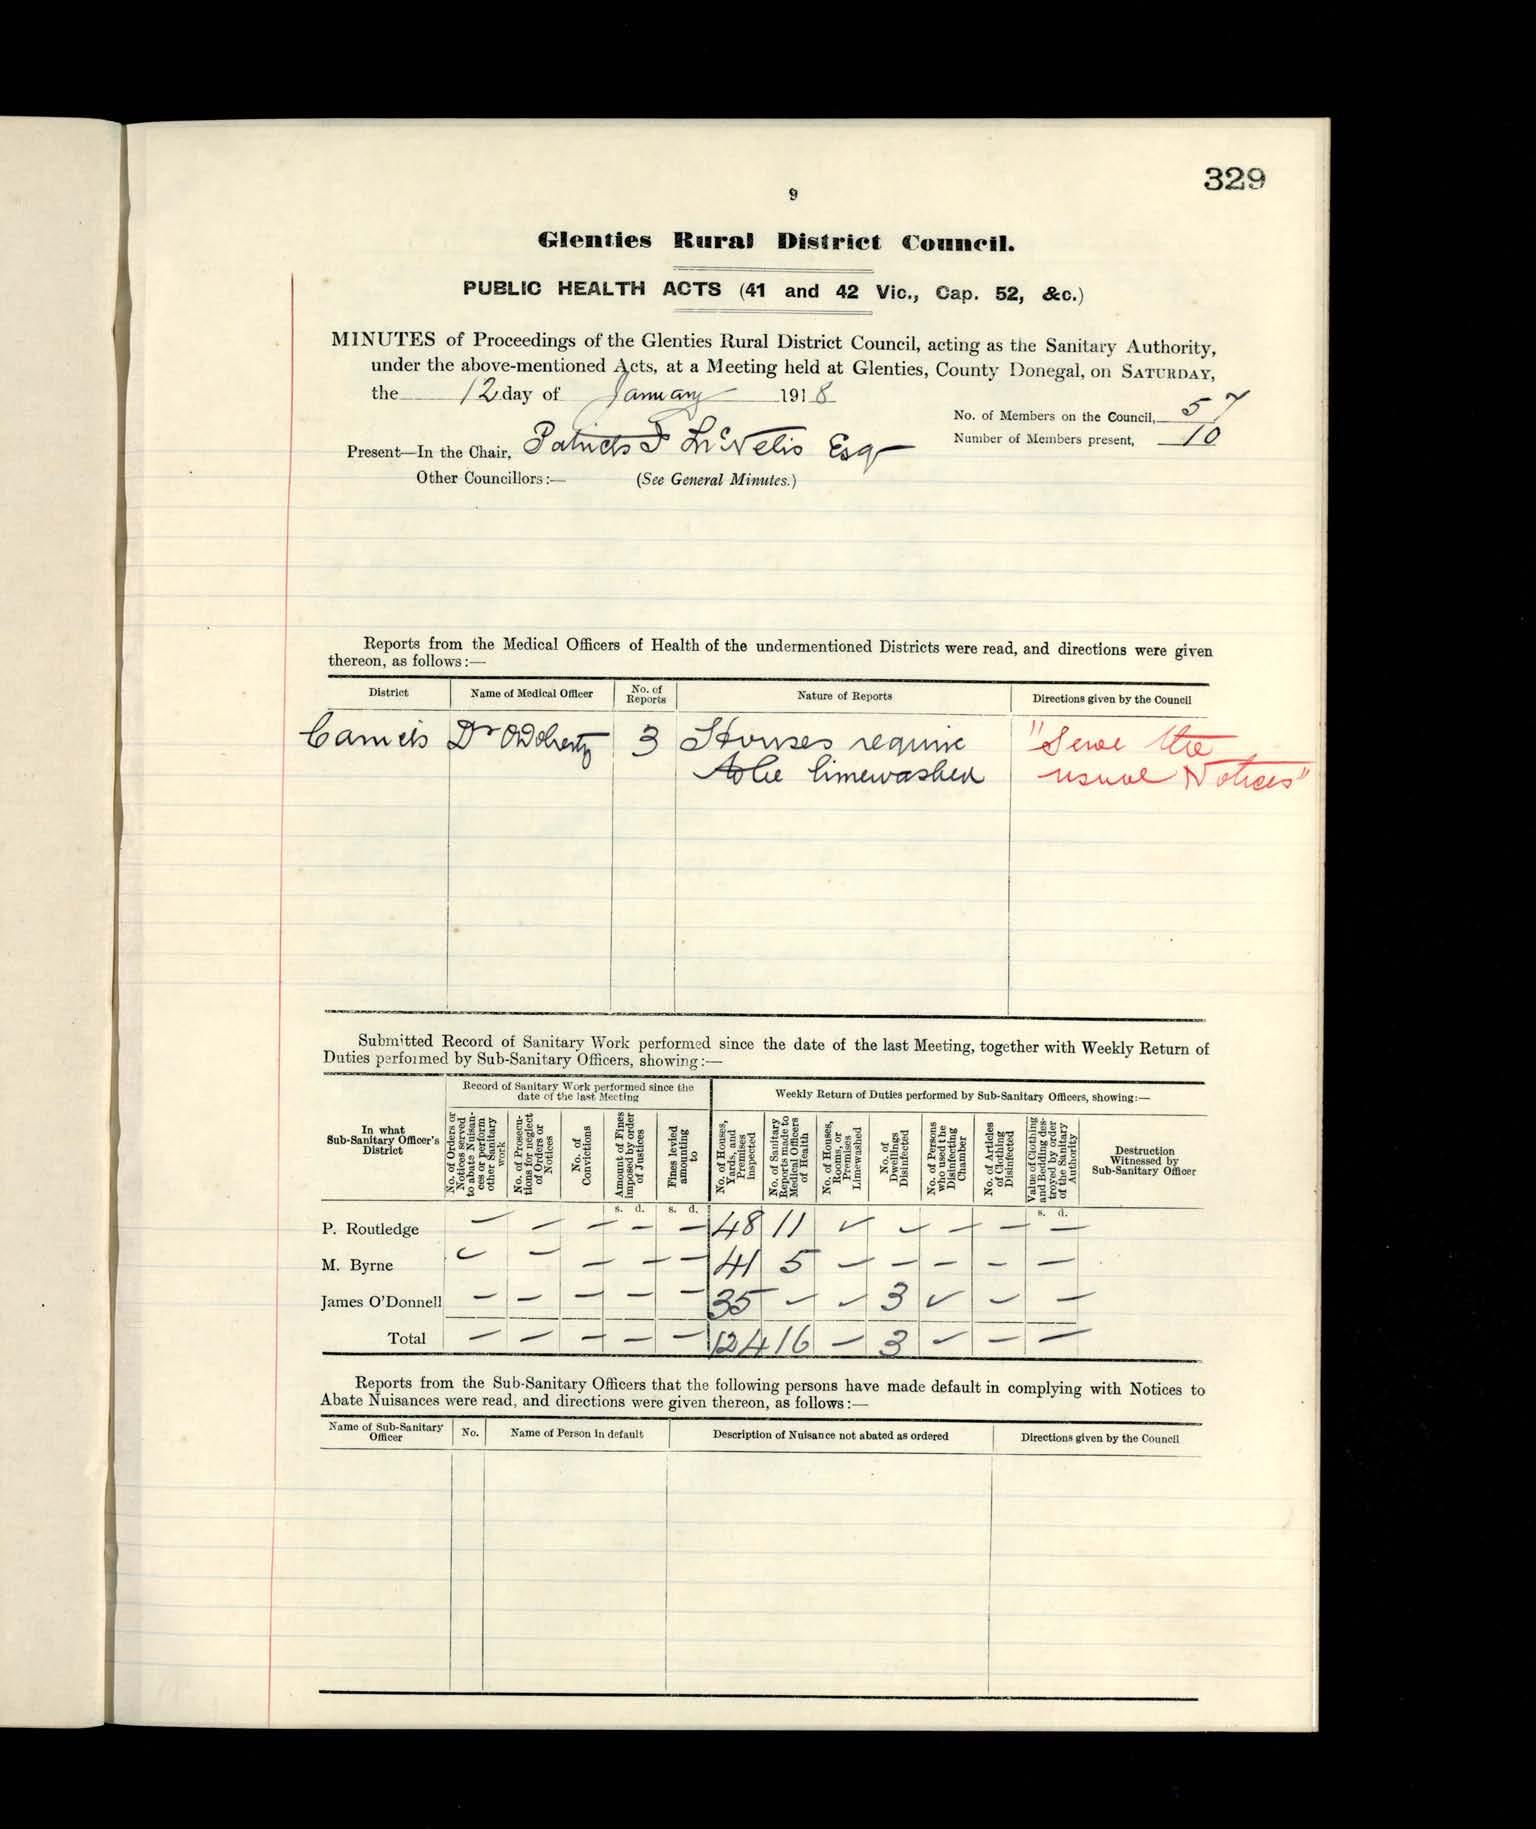 329
9
Glenties Rural District Council.
PUBLIC HEALTH ACTS (41 and 42 Vic., Cap. 52, &c.)
MINUTES of Proceedings of the Glenties Rural District Council, acting as the Sanitary Authority,
under the above-mentioned Acts, at a Meeting held at Glenties, County Donegal, on SATURDAY,
the 12 day of January 1918
No. of Members on the Council, 57
Number of Members present, 10
Present—In the Chair, Patrick F McNelis Esq
Other Councillors:— (See General Minutes.)
Reports from the Medical Officers of Health of the undermentioned Districts were read, and directions were given
thereon, as follows:—
District Name of Medical Officer No. of Reports Nature of Reports Directions given by the Council
Dr O'Doherty 3 Houses require "Serve the
to be limewashed usual Notices"
Submitted Record of Sanitary Work performed since the date of the last Meeting, together with Weekly Return of
Duties performed by Sub-Sanitary Officers, showing:—
Record of Sanitary Work performed since the
date of the last Meeting
Weekly Return of Duties performed by Sub-Sanitary Officers, showing:—
In what
Sub-Sanitary Officer's
District
No. of Orders or
Notices served
to abate Nuisan-
ces or perform
other Sanitary
work
No. of Prosecu-
tions for neglect
of Orders or
Notices
No. of
Convictions
Amount of Fines
imposed by order
of Justices
Fines levied
amounting
to
No. of Houses,
Yards, and
Premises
inspected
No. of Sanitary
Reports made to
Medical Officers
of Health
No. of Houses,
Rooms, or
Premises
Limewashed
No. of
Dwellings
Disinfected
No. of Persons
who used the
Disinfecting
Chamber
No. of Articles
of Clothing
Disinfected
Value of Clothing
and Bedding des-
troyed by order
of the Sanitary
Authority
Destruction
Witnessed by
Sub-Sanitary Officer
s. d. s. d. s. d.
P. Routledge — — — — — 48 11 — — — — —
M. Byrne — — — — — 41 5 — — — — —
James O'Donnell — — — — — 35 — — 3 — — —
Total — — — — — 124 16 — 3 — — —
Reports from the Sub-Sanitary Officers that the following persons have made default in complying with Notices to
Abate Nuisances were read, and directions were given thereon, as follows:—
Name of Sub-Sanitary Officer No. Name of Person in default Description of Nuisance not abated as ordered Directions given by the Council